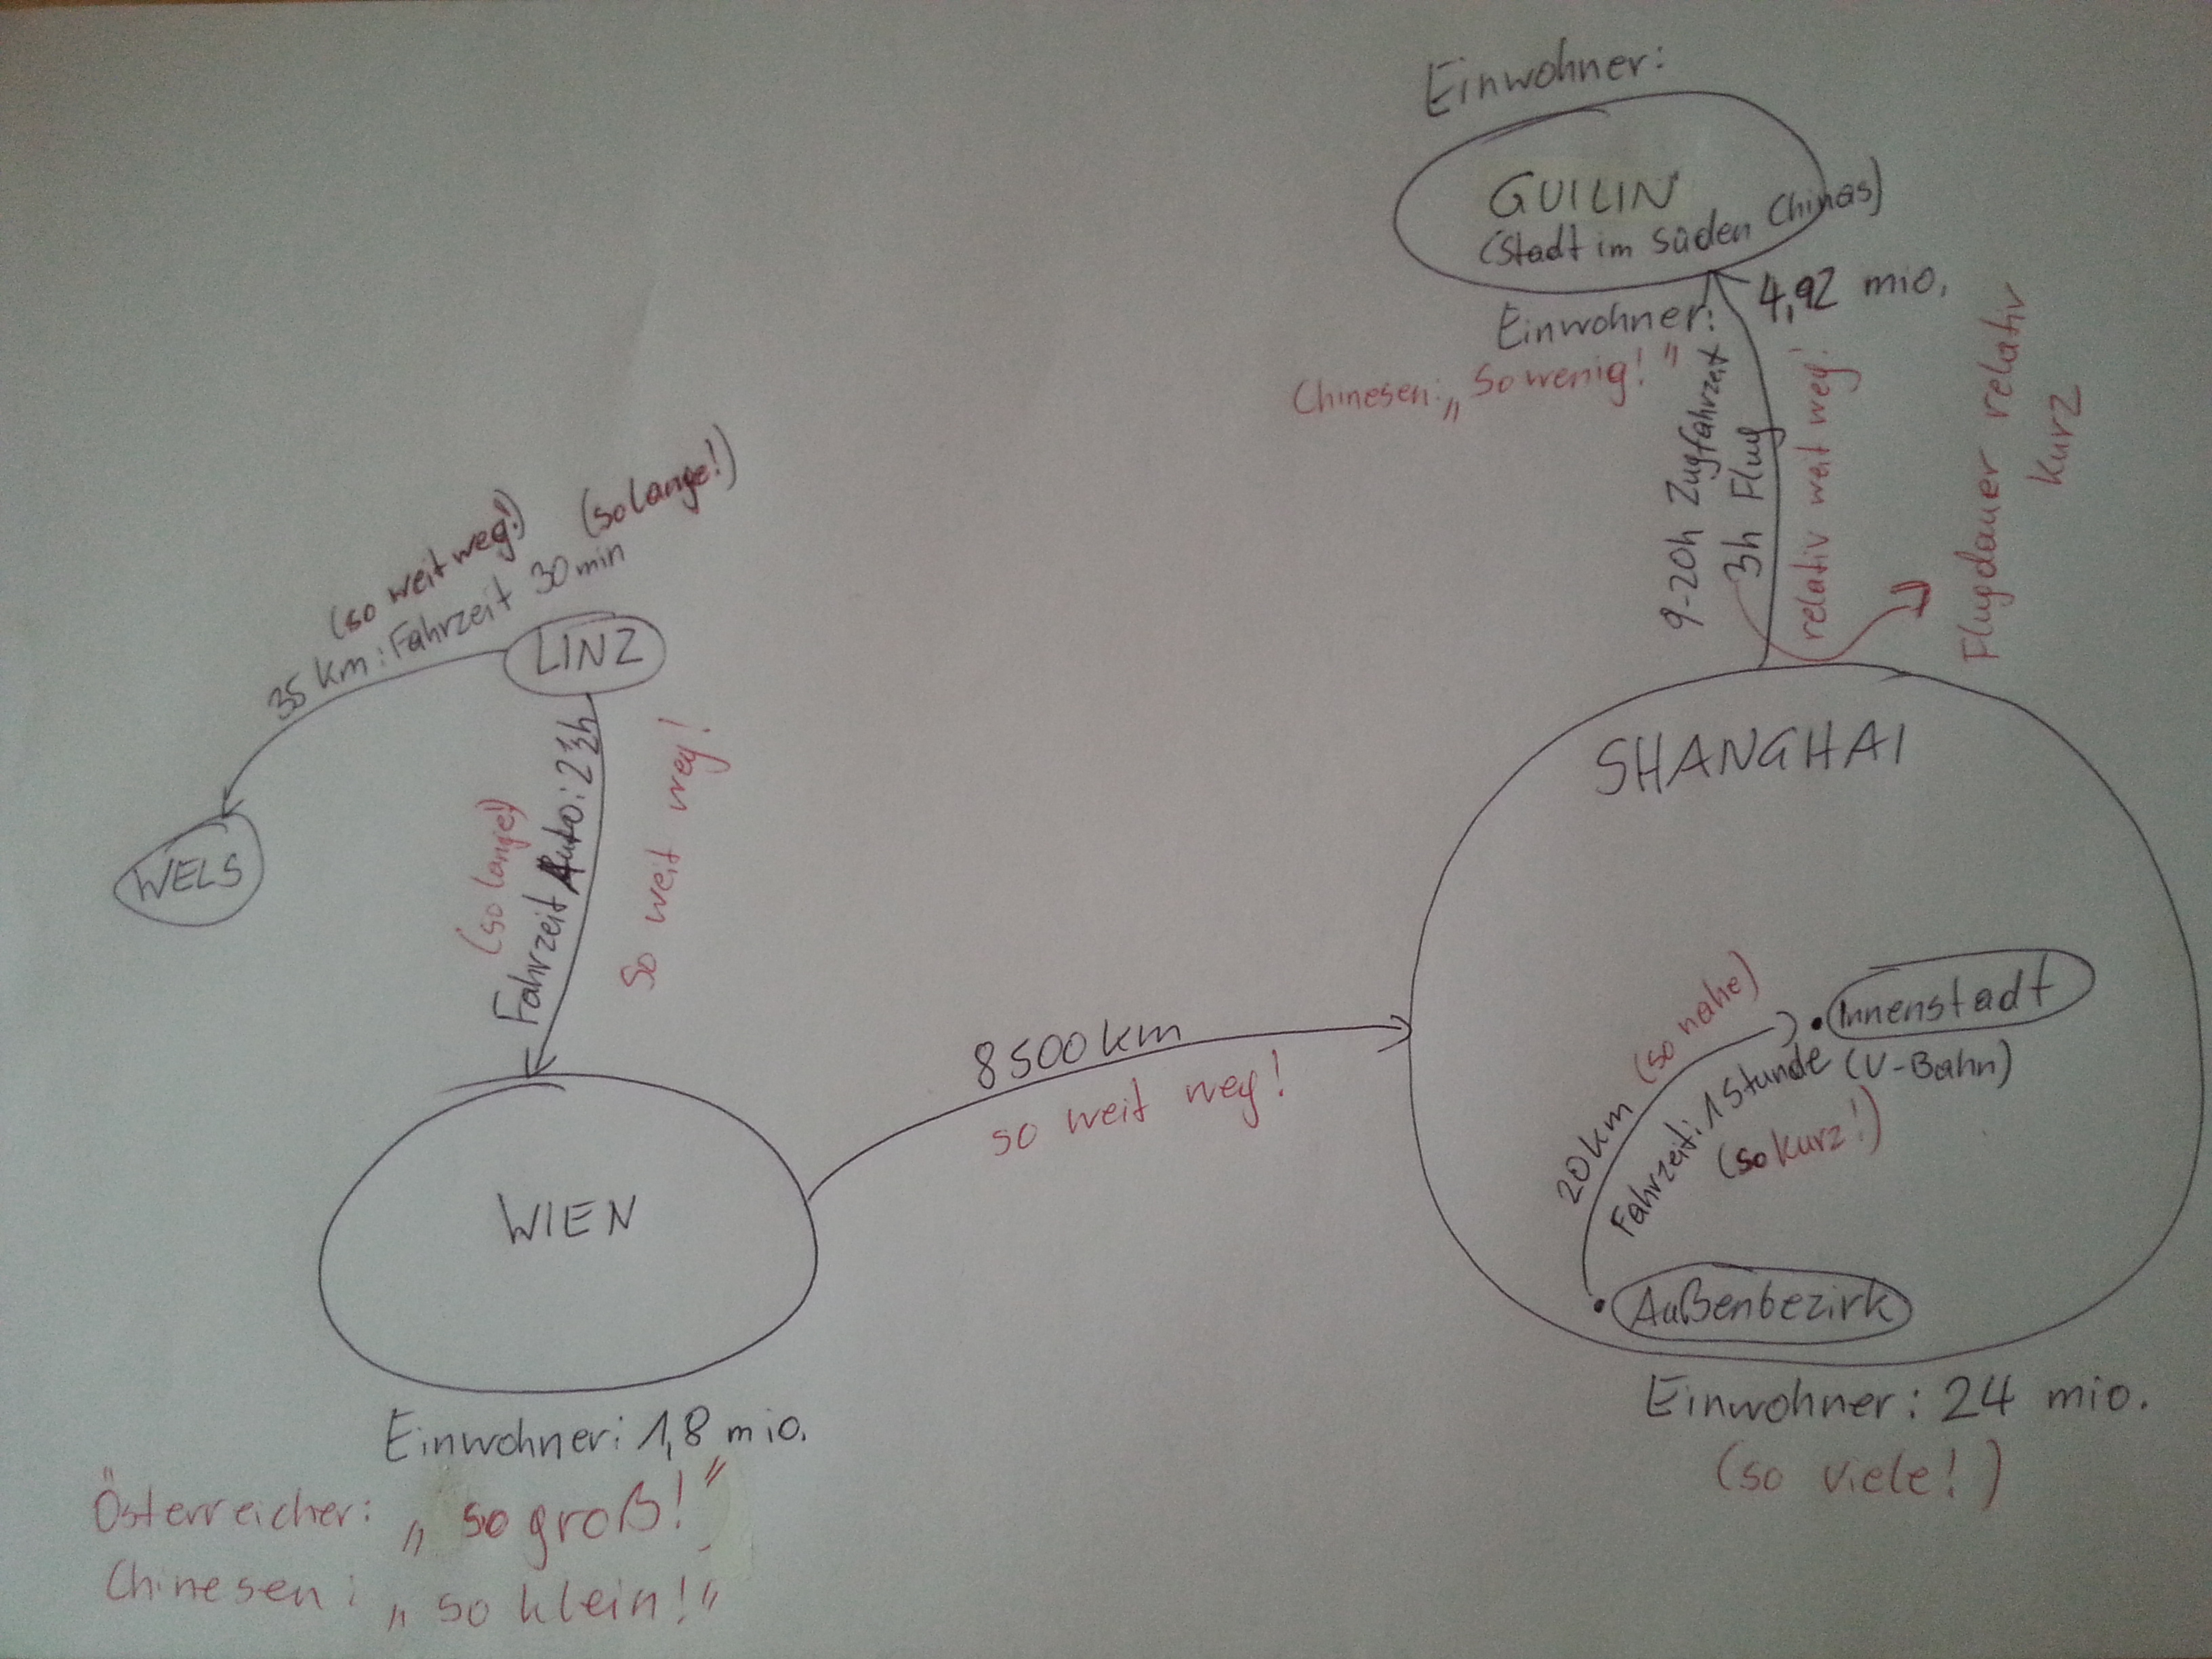 Einwohner:
GUILIN
(Stadt im Süden Chinas)
Einwohner: 4,92 mio.
Chinesen: „So wenig!"
9-20h Zugfahrzeit
3h Flug
relativ weit weg!
Flugdauer relativ
kurz
(so weit weg!) (so lange!)
35 km: Fahrzeit 30 min
LINZ
WELS
(so lange!)
Fahrzeit Auto: 2
So weit weg!
WIEN
Einwohner: 1,8 mio.
Österreicher: „so groß!"
Chinesen: „so klein!"
8500 km
so weit weg!
SHANGHAI
Innenstadt
20km (so nahe)
Fahrzeit: 1 Stunde (U-Bahn)
(so kurz!)
Außenbezirk
Einwohner: 24 mio.
(so viele!)